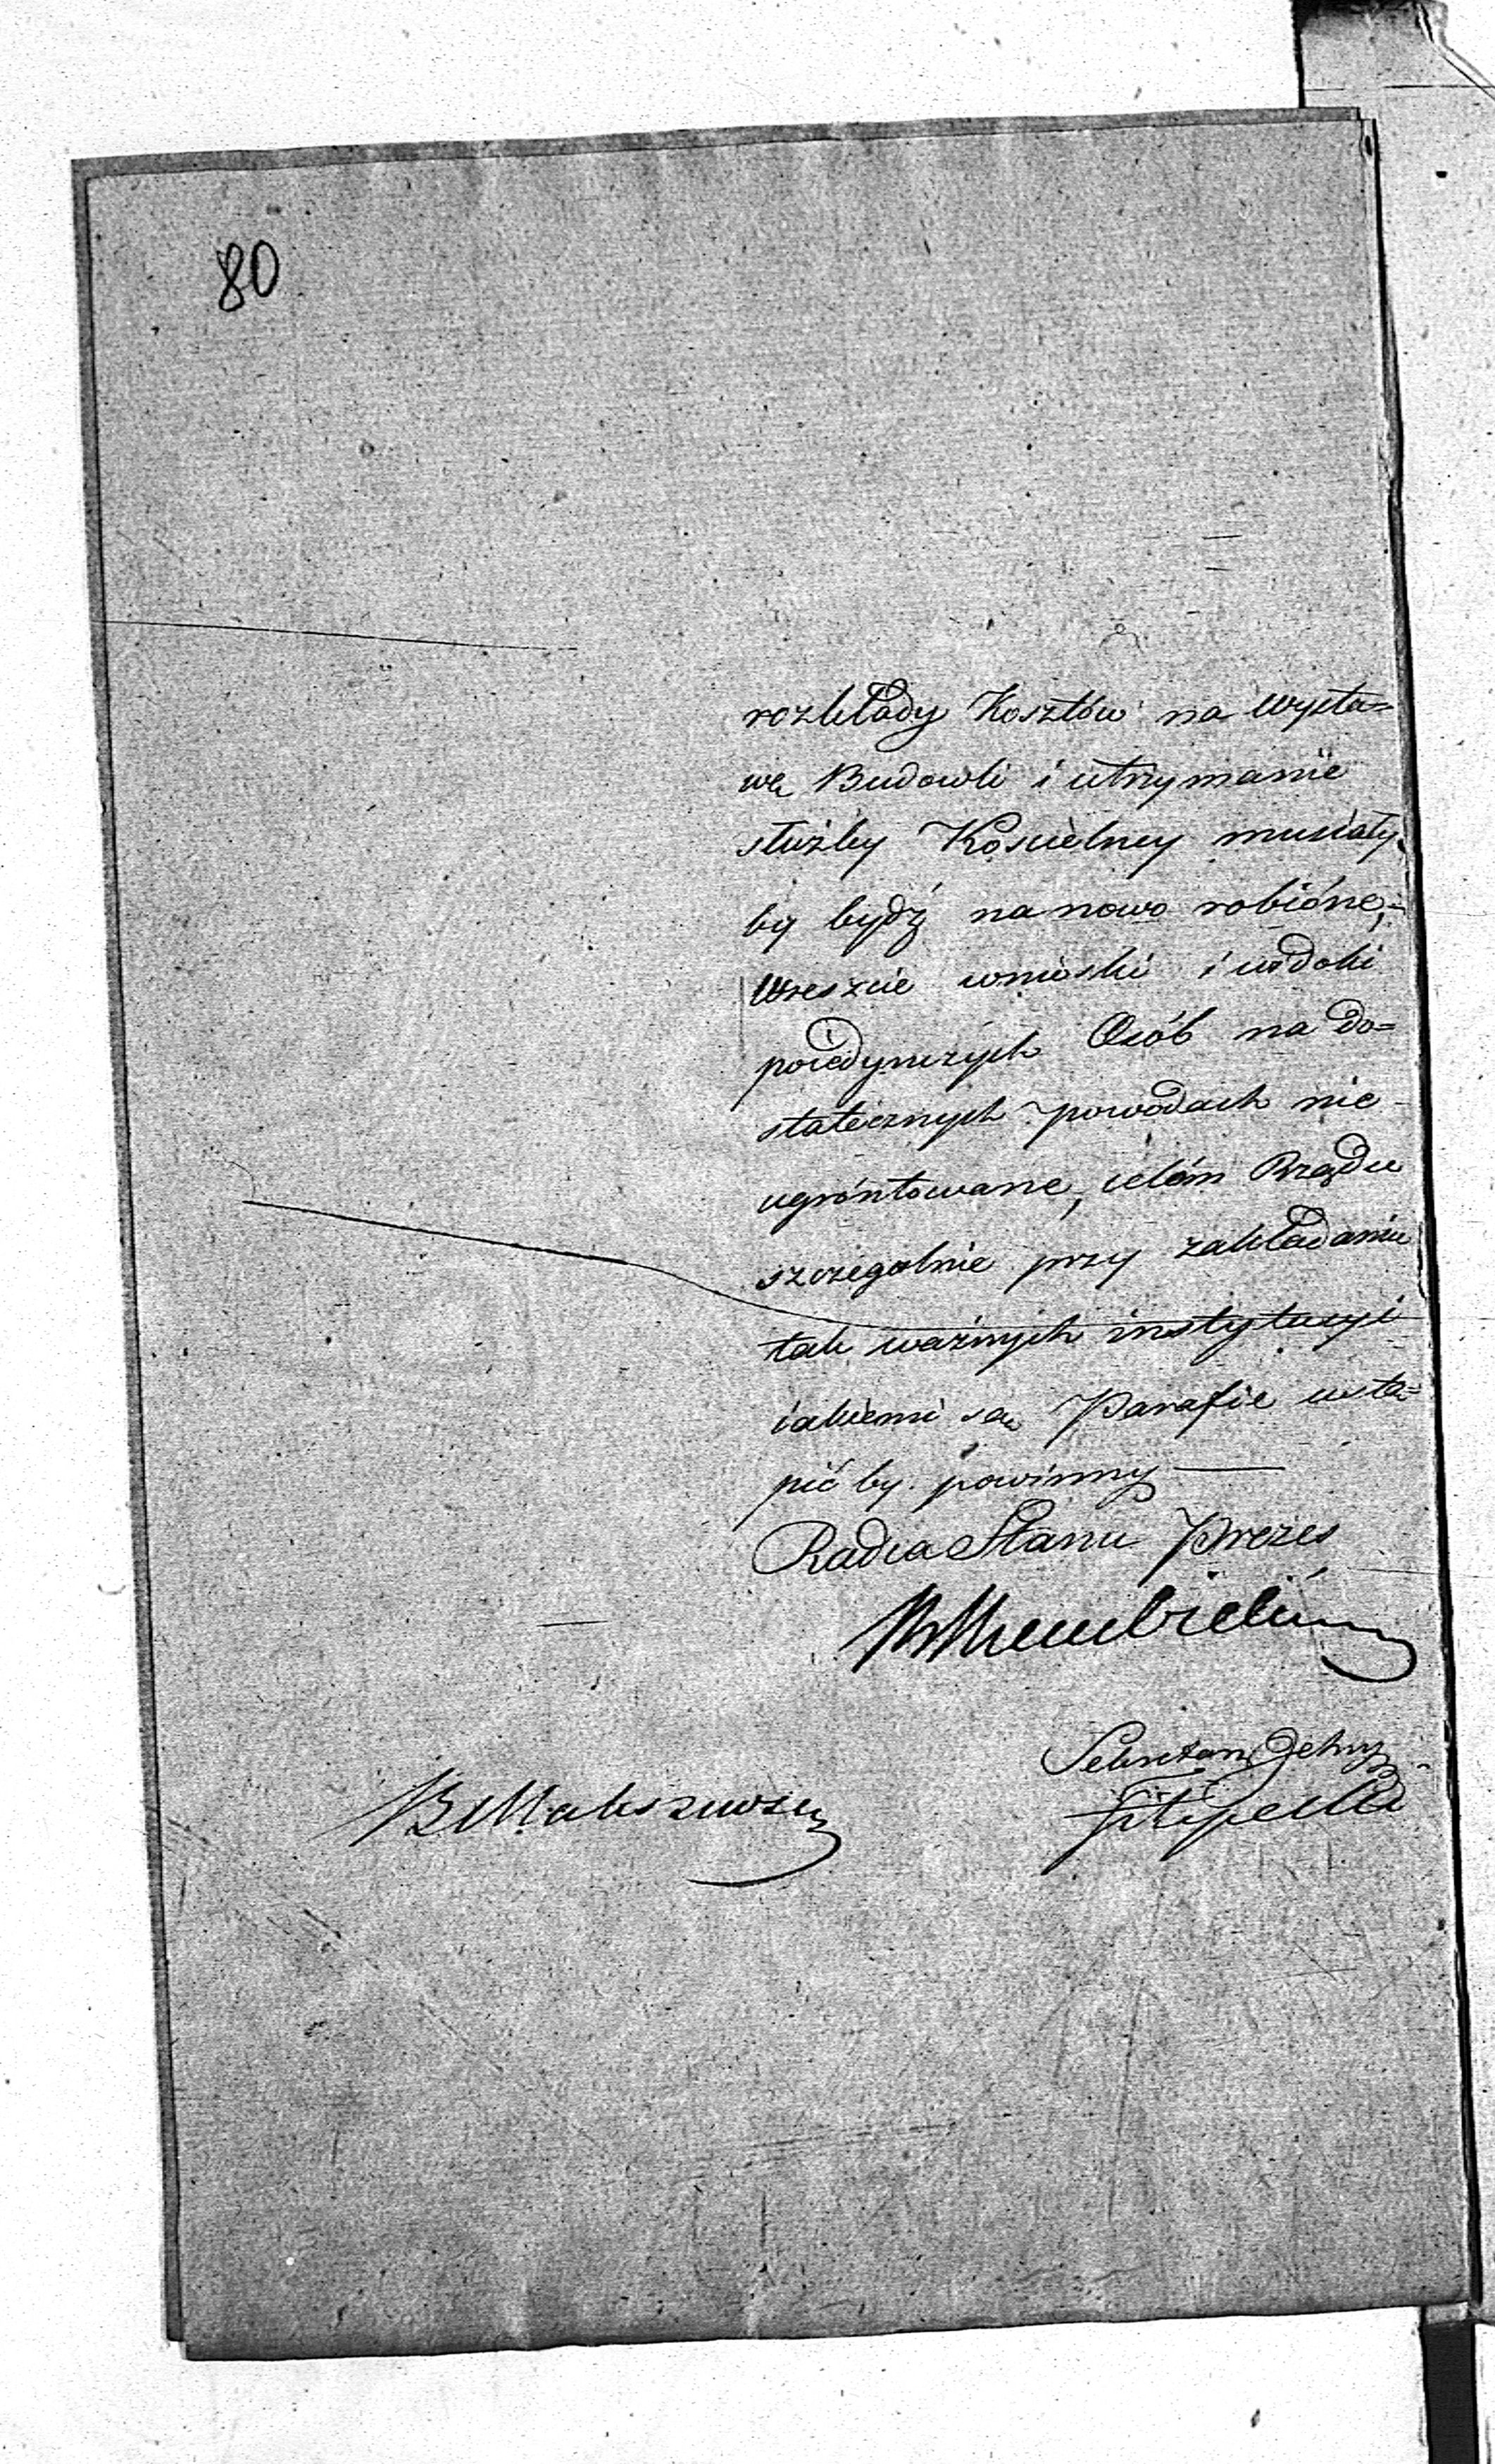 80
rozkłady Kosztów na wysta=
wę Budowli i utrzymanie
służby Koscielney musiały
by bydź na nowo robióne,
wreszcie wnioski i widoki
poiedynczych Osób na do=
statecznych powodach nie
ugróntowane, celóm Rządu
szczegolnie przy zakładaniu
tak ważnych instytucyi
iakiemi są Parafie ustą=
pić by powinny —
Radca Stanu Prezes
Sekretarz Jlny
Filipecki